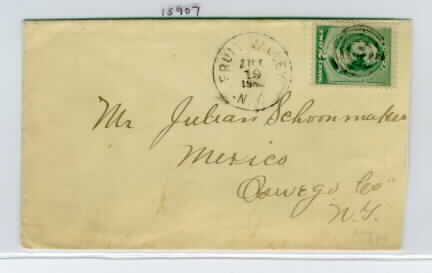 15907
FRUIT VALLEY
19
N.Y.
Mr Julian Schoonmaker
Mexico
Oswego Co
N.Y.